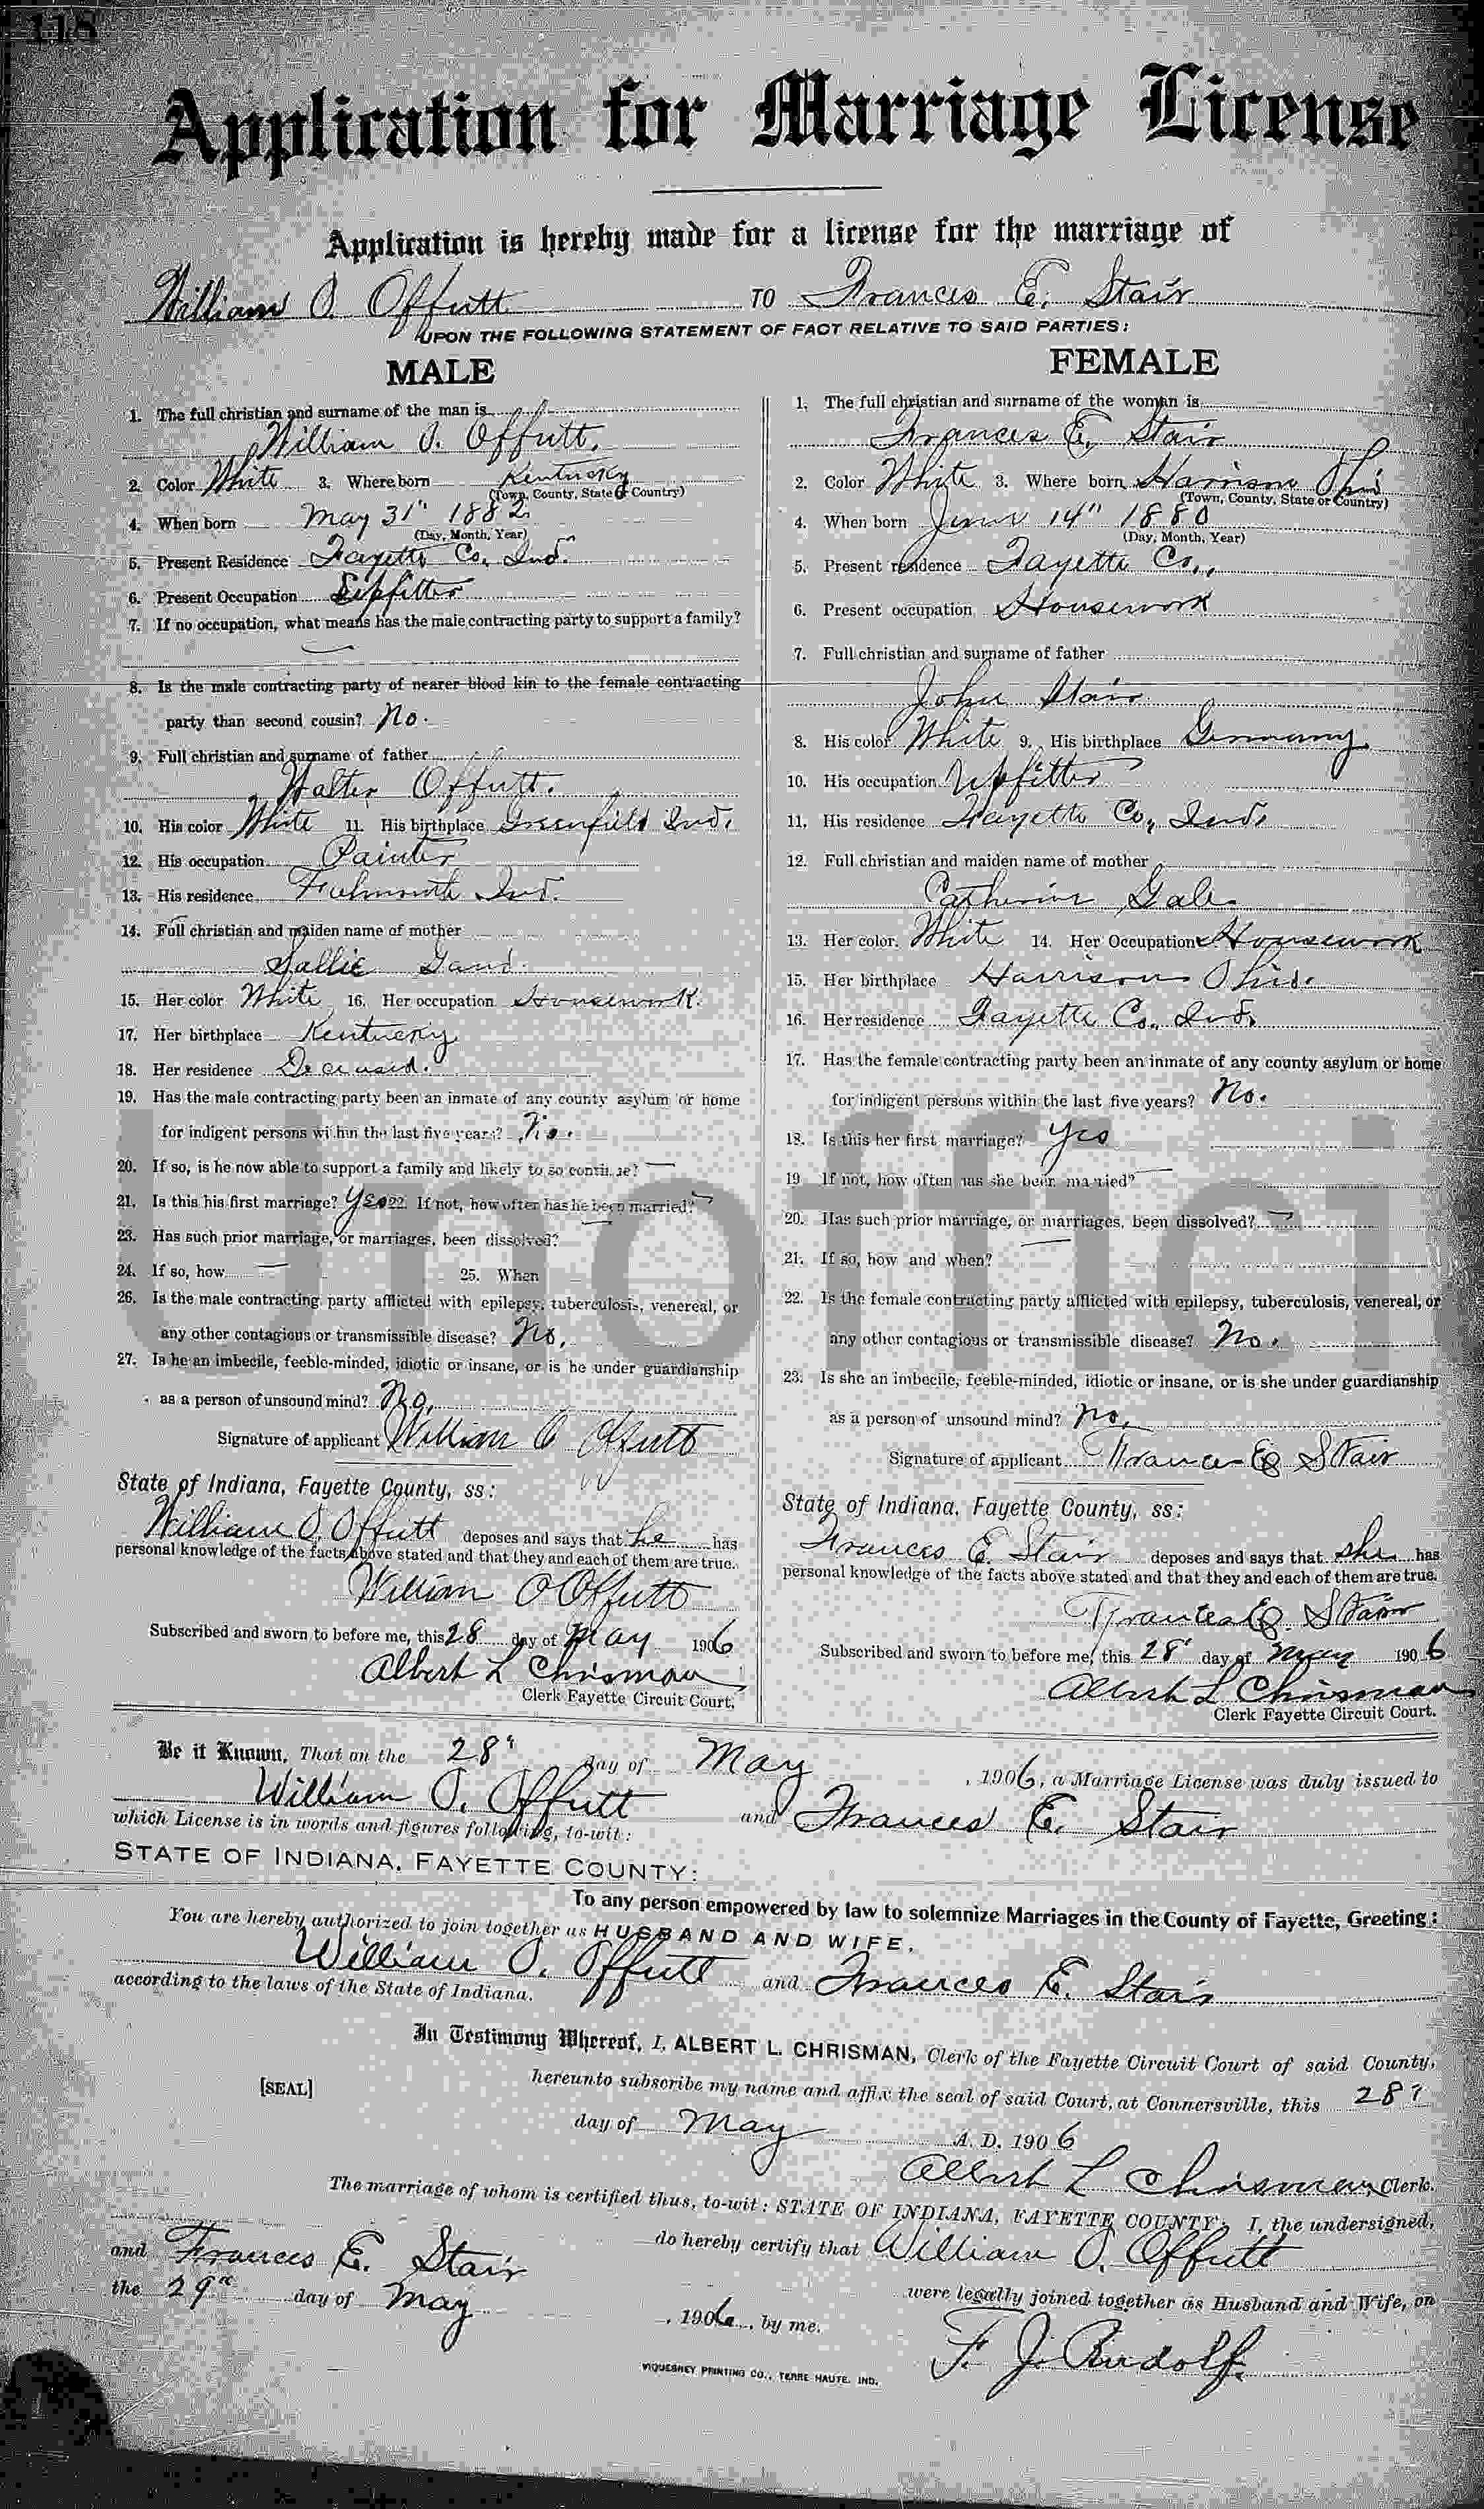 118
Application for Marriage License
Application is hereby made for a license for the marriage of
William O. Offutt TO Frances E. Stair
UPON THE FOLLOWING STATEMENT OF FACT RELATIVE TO SAID PARTIES:
MALE
1. The full christian and surname of the man is
William O. Offutt.
2. Color White 3. Where born Kentucky
(Town, County, State or Country)
4. When born May 31" 1882
(Day, Month, Year)
5. Present Residence Fayette Co. Ind.
6. Present Occupation
7. If no occupation, what means has the male contracting party to support a family?
8. Is the male contracting party of nearer blood kin to the female contracting
party than second cousin? No.
9. Full christian and surname of father
Walter Offutt.
10. His color White 11. His birthplace Greenfield Ind.
12. His occupation Painter
13. His residence Falmouth Ind.
14. Full christian and maiden name of mother
Sallie
15. Her color White 16. Her occupation Housework.
17. Her birthplace Kentucky
18. Her residence Deceased.
19. Has the male contracting party been an inmate of any county asylum or home
for indigent persons within the last five years? No.
20. If so, is he now able to support a family and likely to so continue? —
21. Is this his first marriage? Yes 22. If not, how often has he been married? —
23. Has such prior marriage, or marriages, been dissolved? —
24. If so, how — 25. When
26. Is the male contracting party afflicted with epilepsy, tuberculosis, venereal, or
any other contagious or transmissible disease? No.
27. Is he an imbecile, feeble-minded, idiotic or insane, or is he under guardianship
as a person of unsound mind? No.
Signature of applicant William O Offutt
State of Indiana, Fayette County, ss:
William O. Offutt deposes and says that he has
personal knowledge of the facts above stated and that they and each of them are true.
William O Offutt
Subscribed and sworn to before me, this 28 day of May 1906
Albert L Chrisman
Clerk Fayette Circuit Court.
FEMALE
1. The full christian and surname of the woman is
Frances E. Stair
2. Color White 3. Where born Harrison Ohio
(Town, County, State or Country)
4. When born June 14" 1880
(Day, Month, Year)
5. Present residence Fayette Co.,
6. Present occupation Housework
7. Full christian and surname of father
John Stair
8. His color White 9. His birthplace Germany
10. His occupation Upfitter
11. His residence Fayette Co, Ind.
12. Full christian and maiden name of mother
Catherine Gale
13. Her color White 14. Her Occupation Housework
15. Her birthplace Harrison Ohio.
16. Her residence Fayette Co. Ind.
17. Has the female contracting party been an inmate of any county asylum or home
for indigent persons within the last five years? No.
18. Is this her first marriage? Yes
19 If not, how often has she been married? —
20. Has such prior marriage, or marriages, been dissolved? —
21. If so, how and when? —
22. Is the female contracting party afflicted with epilepsy, tuberculosis, venereal, or
any other contagious or transmissible disease? No.
23. Is she an imbecile, feeble-minded, idiotic or insane, or is she under guardianship
as a person of unsound mind? No.
Signature of applicant Frances E Stair
State of Indiana, Fayette County, ss:
Frances E. Stair deposes and says that she has
personal knowledge of the facts above stated and that they and each of them are true.
Frances E. Stair
Subscribed and sworn to before me, this 28" day of May 1906
Albert L Chrisman
Clerk Fayette Circuit Court.
Unoffici
Be it Known, That on the 28" day of May, 1906, a Marriage License was duly issued to
William O. Offutt and Frances E. Stair
which License is in words and figures following, to-wit:
STATE OF INDIANA, FAYETTE COUNTY:
To any person empowered by law to solemnize Marriages in the County of Fayette, Greeting:
You are hereby authorized to join together as HUSBAND AND WIFE,
William O. Offutt and Frances E. Stair
according to the laws of the State of Indiana.
In Testimony Whereof, I, ALBERT L. CHRISMAN, Clerk of the Fayette Circuit Court of said County,
hereunto subscribe my name and affix the seal of said Court, at Connersville, this 28"
[SEAL]
day of May A. D. 1906
Albert L Chrisman, Clerk.
The marriage of whom is certified thus, to-wit: STATE OF INDIANA, FAYETTE COUNTY: I, the undersigned,
do hereby certify that William O. Offutt
and Frances E. Stair were legally joined together as Husband and Wife, on
the 29" day of May, 1906, by me.
F. J. Rudolf.
VIQUESNEY PRINTING CO., TERRE HAUTE, IND.